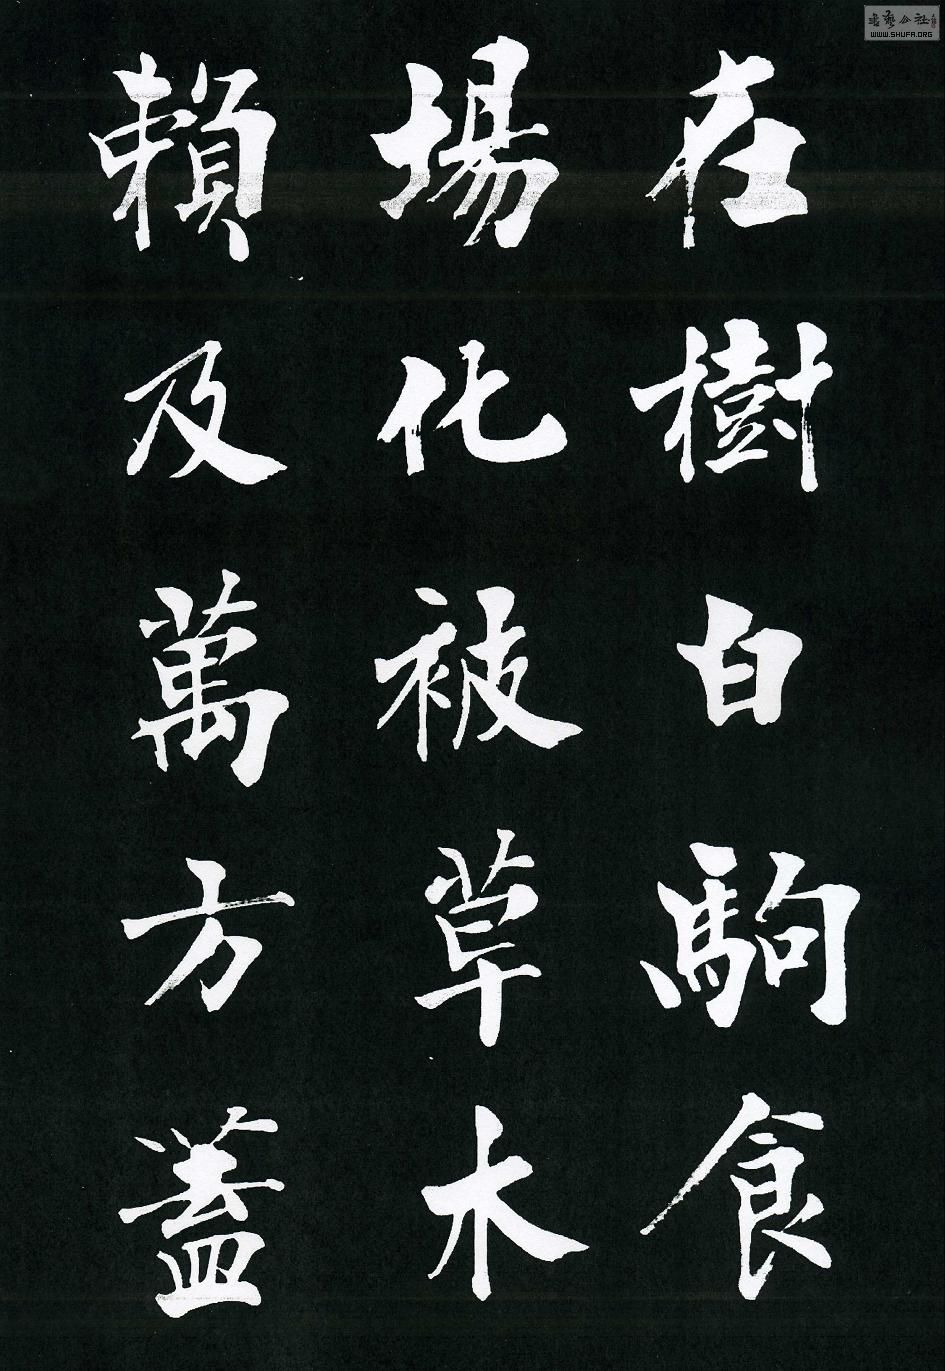 在樹白駒食
場化被草木
賴及萬方蓋
WWW.SHUFA.ORG